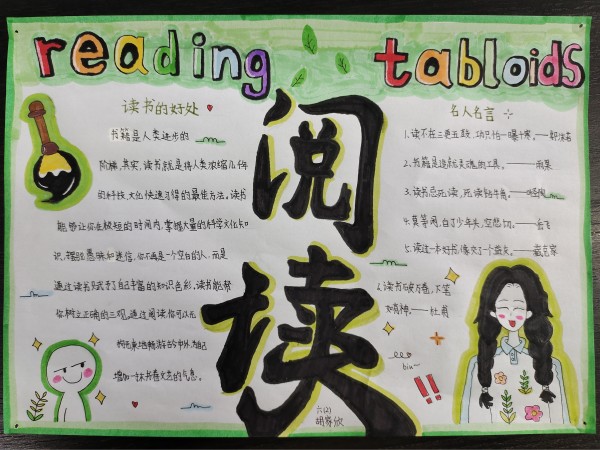 reading tabloids
阅读
读书的好处
书籍是人类进步的
阶梯,其实,读书就是将人类浓缩几千
的科技、文化快速习得的最佳方法。读书
能够让你在极短的时间内,掌握大量的科学文化知
识,摆脱愚昧和迷信,你不再是一个空白的人,而是
通过读书赋予了自己丰富的知识色彩,读书能帮
你树立正确的三观,通过阅读你可以无
拘无束地畅游在书中,为自己
增加一抹书香文艺的气息。
名人名言
1.读不在三更五鼓,功只怕一曝十寒。——郭沫若
2.书籍是造就灵魂的工具。——雨果
3.读书忌死读,死读钻牛角。——叶圣陶
4.莫等闲,白了少年头,空悲切。——岳飞
5.读过一本好书,像交了一个益友。——臧克家
6.读书破万卷,下笔
如有神。——杜甫
biu~
!!
六(2)
胡 欣